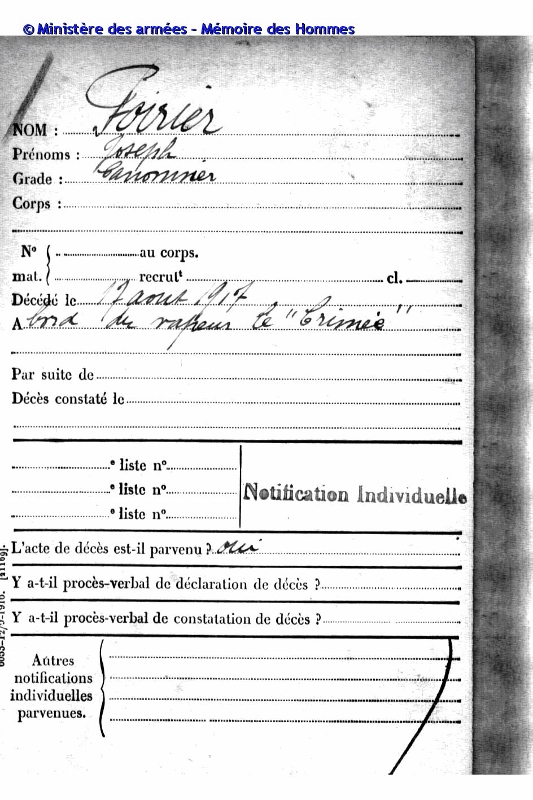 © Ministère des armées - Mémoire des Hommes
NOM : Poirier
Prénoms : Joseph
Grade : Canonnier
Corps :
N° au corps.
mat. recrutt cl.
Décédé le 17 aout 1917
A bord du vapeur le "Crimée"
Par suite de
Décès constaté le
e liste n°
e liste n°
e liste n°
Notification Individuelle
L'acte de décès est-il parvenu ? oui
Y a-t-il procès-verbal de déclaration de décès ?
Y a-t-il procès-verbal de constatation de décès ?
Autres
notifications
individuelles
parvenues.